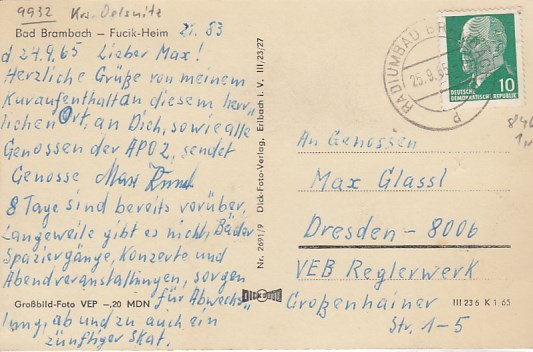 9932 Krs. Oelsnitz
Bad Brambach – Fucik-Heim 21. 83
d 24.9.65 Lieber Max!
Herzliche Grüße von meinem
Kuraufenthalt an diesem herr„
lichen Ort, an Dich, sowie alle
Genossen der APO 2, sendet
Genosse Max
8 Tage sind bereits vorüber,
Langeweile gibt es nicht, Bäder
Spaziergänge, Konzerte und
Abendveranstaltungen, sorgen
für Abwechs„
lung, ab und zu auch ein
zünftiger Skat.
Großbild-Foto VEP –,20 MDN
Nr. 2691/9 Dick-Foto-Verlag, Erlbach i. V. III/23/27
DICK FOTO
RADIUMBAD
25.9.65
DEUTSCHE
DEMOKRATISCHE REPUBLIK
10
An Genossen
Max Glassl
Dresden - 8006
VEB Reglerwerk
Großenhainer
Str. 1-5
III 23 6 K 1 65